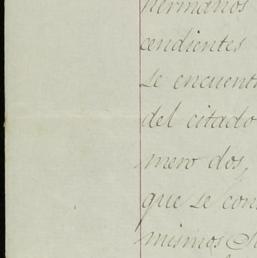 hermanos
cendientes
se encuent
del citado
mero dos,
que se con
mismos